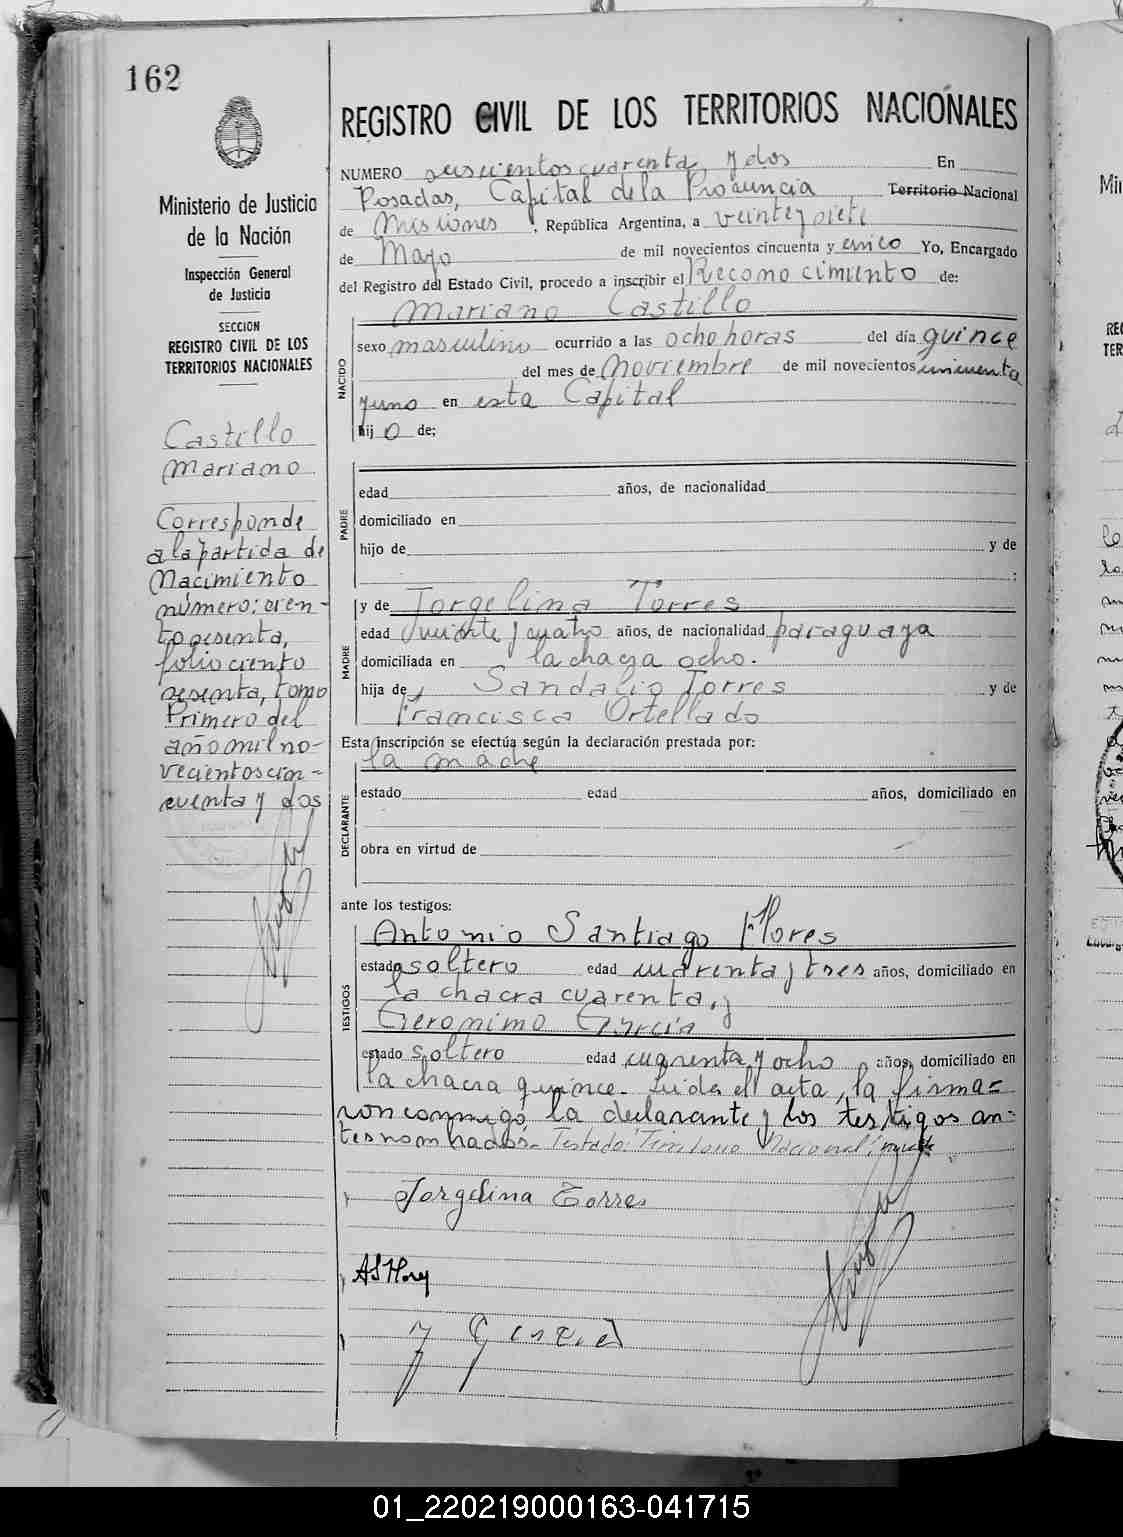 162
REGISTRO CIVIL DE LOS TERRITORIOS NACIONALES
Ministerio de Justicia
de la Nación
Inspección General
de Justicia
SECCION
REGISTRO CIVIL DE LOS
TERRITORIOS NACIONALES
Castillo
Mariano
Corresponde
a la partida de
Nacimiento
número: cien-
to sesenta,
folio ciento
sesenta, tomo
Primero del
año mil no-
vecientos cin-
cuenta y dos
NUMERO seiscientos cuarenta y dos En
Posadas, Capital de la Provincia Territorio Nacional
de Misiones, República Argentina, a veintey siete
de Mayo de mil novecientos cincuenta y cinco Yo, Encargado
del Registro del Estado Civil, procedo a inscribir el Reconocimiento de:
Mariano Castillo
NACIDO
sexo masculino ocurrido a las ocho horas del día quince
del mes de Noviembre de mil novecientos cincuenta
y uno en esta Capital
hijo de:
PADRE
edad años, de nacionalidad
domiciliado en
hijo de y de
;
MADRE
y de Jorgelina Torres
edad veinte y cuatro años, de nacionalidad paraguaya
domiciliada en la chacra ocho.
hija de Sandalio Torres y de
Francisca Ortellado
Esta inscripción se efectúa según la declaración prestada por:
la madre
DECLARANTE
estado edad años, domiciliado en
obra en virtud de
ante los testigos:
TESTIGOS
Antonio Santiago Flores
estado soltero edad cuarenta y tres años, domiciliado en
la chacra cuarenta, y
Geronimo Garcia
estado soltero edad cuarenta y ocho años, domiciliado en
la chacra quince. Leida el acta, la firma=
ron conmigo, la declarante y los testigos an-
tes nombrados. Testado: Territorio Nacional:
Jorgelina Torres
AS Flores
Garcia
01_220219000163-041715